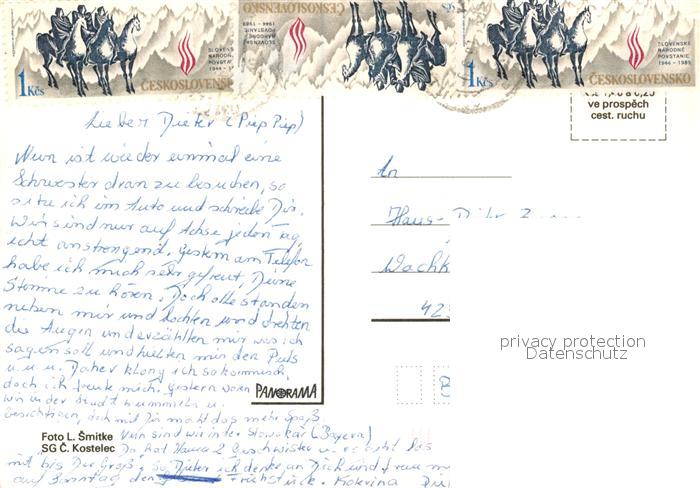 1 Kčs SLOVENSKÉ NÁRODNÉ POVSTANIE 1944-1989 ČESKOSLOVENSKO
SLOVENSKÉ NÁRODNÉ POVSTANIE 1944-1989 ČESKOSLOVENSKO
1 Kčs SLOVENSKÉ NÁRODNÉ POVSTANIE 1944-1989 ČESKOSLOVENSKO
ve prospěch
cest. ruchu
Lieber Dieter (Piep Piep)
Nun ist wieder einmal eine
Schwester dran zu besuchen, so
sitze ich im Auto und schreibe Dir.
Wir sind nur auf Achse jeden Tag,
echt anstrengend. Gestern am Telefon
habe ich mich sehr gefreut, Deine
Stimme zu hören. Doch alle standen
neben mir und lachten und drehten
die Augen und erzählten mir was ich
sagen soll und hielten mir den Puls
u.s.w. Daher klang ich so komisch,
doch ich freute mich. Gestern waren
wir in der Stadt bummeln u.
besichtigen, doch mit Dir macht das mehr Spaß
Nun sind wir in der Slowakei (Bayern)
Da hat Mama 2 Geschwister
mit bis Die Große. So Dieter ich denke an Dich und freue m
auf Sonntag den Frühstück. Katerina
An
Hans-Dieter
42
PANORAMA
Foto L. Šmitke
SG Č. Kostelec
privacy protection
Datenschutz